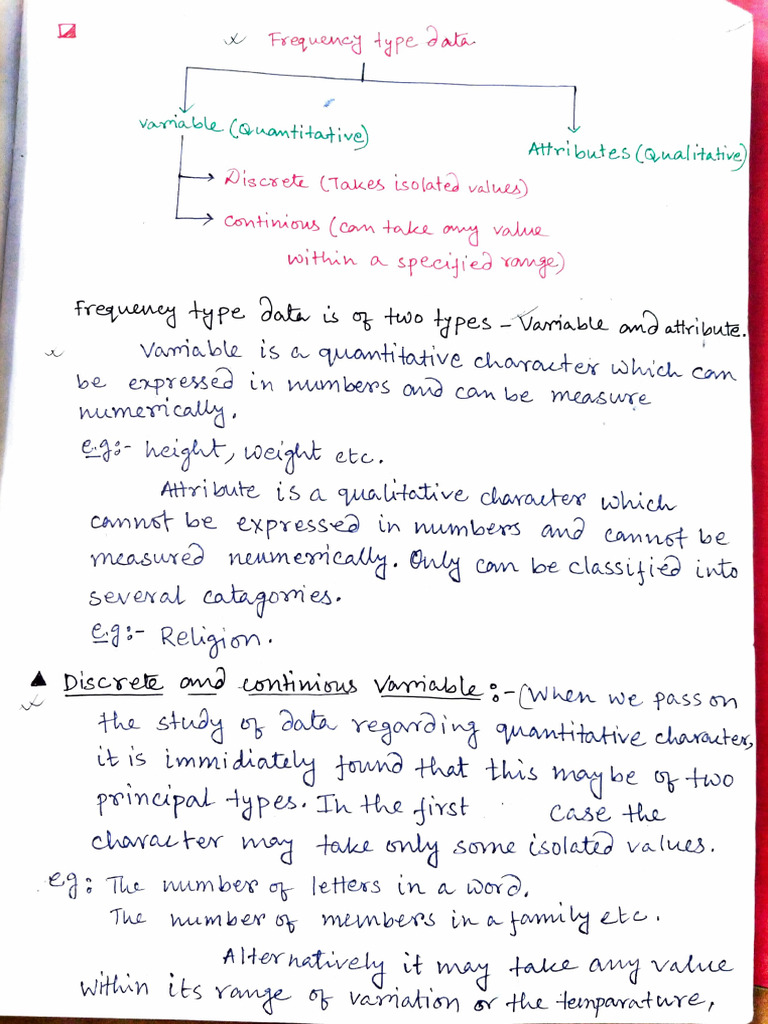 Frequency type data
Variable (Quantitative)
Attributes (Qualitative)
Discrete (Takes isolated values)
Continious (can take any value
within a specified range)
Frequency type data is of two types - Variable and attribute.
Variable is a quantitative character which can
be expressed in numbers and can be measure
numerically.
e.g:- height, weight etc.
Attribute is a qualitative character which
cannot be expressed in numbers and cannot be
measured neumerically. Only can be classified into
several catagorries.
e.g:- Religion.
▲ Discrete and continious Variable :- (When we pass on
the study of data regarding quantitative character,
it is immidiately found that this may be of two
principal types. In the first case the
character may take only some isolated values.
eg: The number of letters in a word.
The number of members in a family etc.
Alternatively it may take any value
within its range of variation or the temparature,